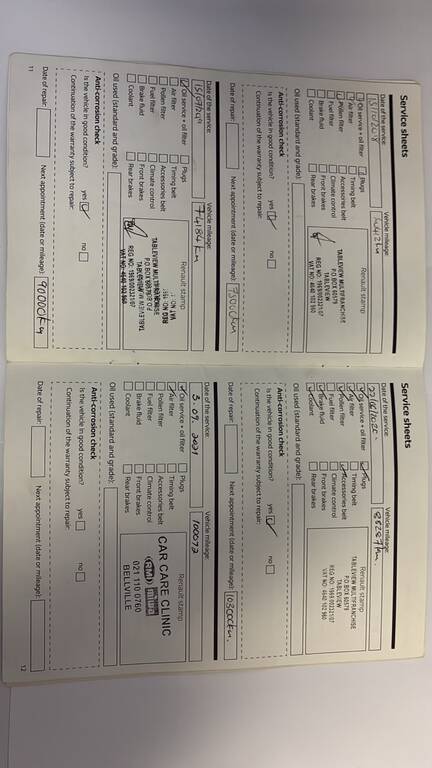 Service sheets
Date of the service:
Vehicle mileage:
15/10/2018
Oil service + oil filter
Plugs
Air filter
Timing belt
Pollen filter
Accessories belt
Fuel filter
Climate control
Brake fluid
Front brakes
Coolant
Rear brakes
Renault stamp
TABLEVIEW MULTIFRANCHISE
P.O BOX 60579
TABLEVIEW
REG NO: 1969/000321/07
VAT NO: 4640 102 960
Oil used (standard and grade):
Anti-corrosion check
Is the vehicle in good condition?
yes
no
Continuation of the warranty subject to repair:
Date of repair:
Next appointment (date or mileage):
75000km
Date of the service:
Vehicle mileage:
74184km
Oil service + oil filter
Plugs
Air filter
Timing belt
Pollen filter
Accessories belt
Fuel filter
Climate control
Brake fluid
Front brakes
Coolant
Rear brakes
Renault stamp
TABLEVIEW MULTIFRANCHISE
P.O BOX 60579
TABLEVIEW
REG NO: 1969/000321/07
VAT NO: 4640 102 960
Oil used (standard and grade):
Anti-corrosion check
Is the vehicle in good condition?
yes
no
Continuation of the warranty subject to repair:
Date of repair:
Next appointment (date or mileage):
90000km
11
Service sheets
Date of the service:
Vehicle mileage:
88287km
Oil service + oil filter
Plugs
Air filter
Timing belt
Pollen filter
Accessories belt
Fuel filter
Climate control
Brake fluid
Front brakes
Coolant
Rear brakes
Renault stamp
TABLEVIEW MULTIFRANCHISE
P.O BOX 60579
TABLEVIEW
REG NO: 1969/000321/07
VAT NO: 4640 102 960
Oil used (standard and grade):
Anti-corrosion check
Is the vehicle in good condition?
yes
no
Continuation of the warranty subject to repair:
Date of repair:
Next appointment (date or mileage):
103000km
Date of the service:
Vehicle mileage:
3.09.2021
100072
Oil service + oil filter
Plugs
Air filter
Timing belt
Pollen filter
Accessories belt
Fuel filter
Climate control
Brake fluid
Front brakes
Coolant
Rear brakes
Renault stamp
CAR CARE CLINIC
RMI
021 110 0760
BELLVILLE
Oil used (standard and grade):
Anti-corrosion check
Is the vehicle in good condition?
yes
no
Continuation of the warranty subject to repair:
Date of repair:
Next appointment (date or mileage):
12